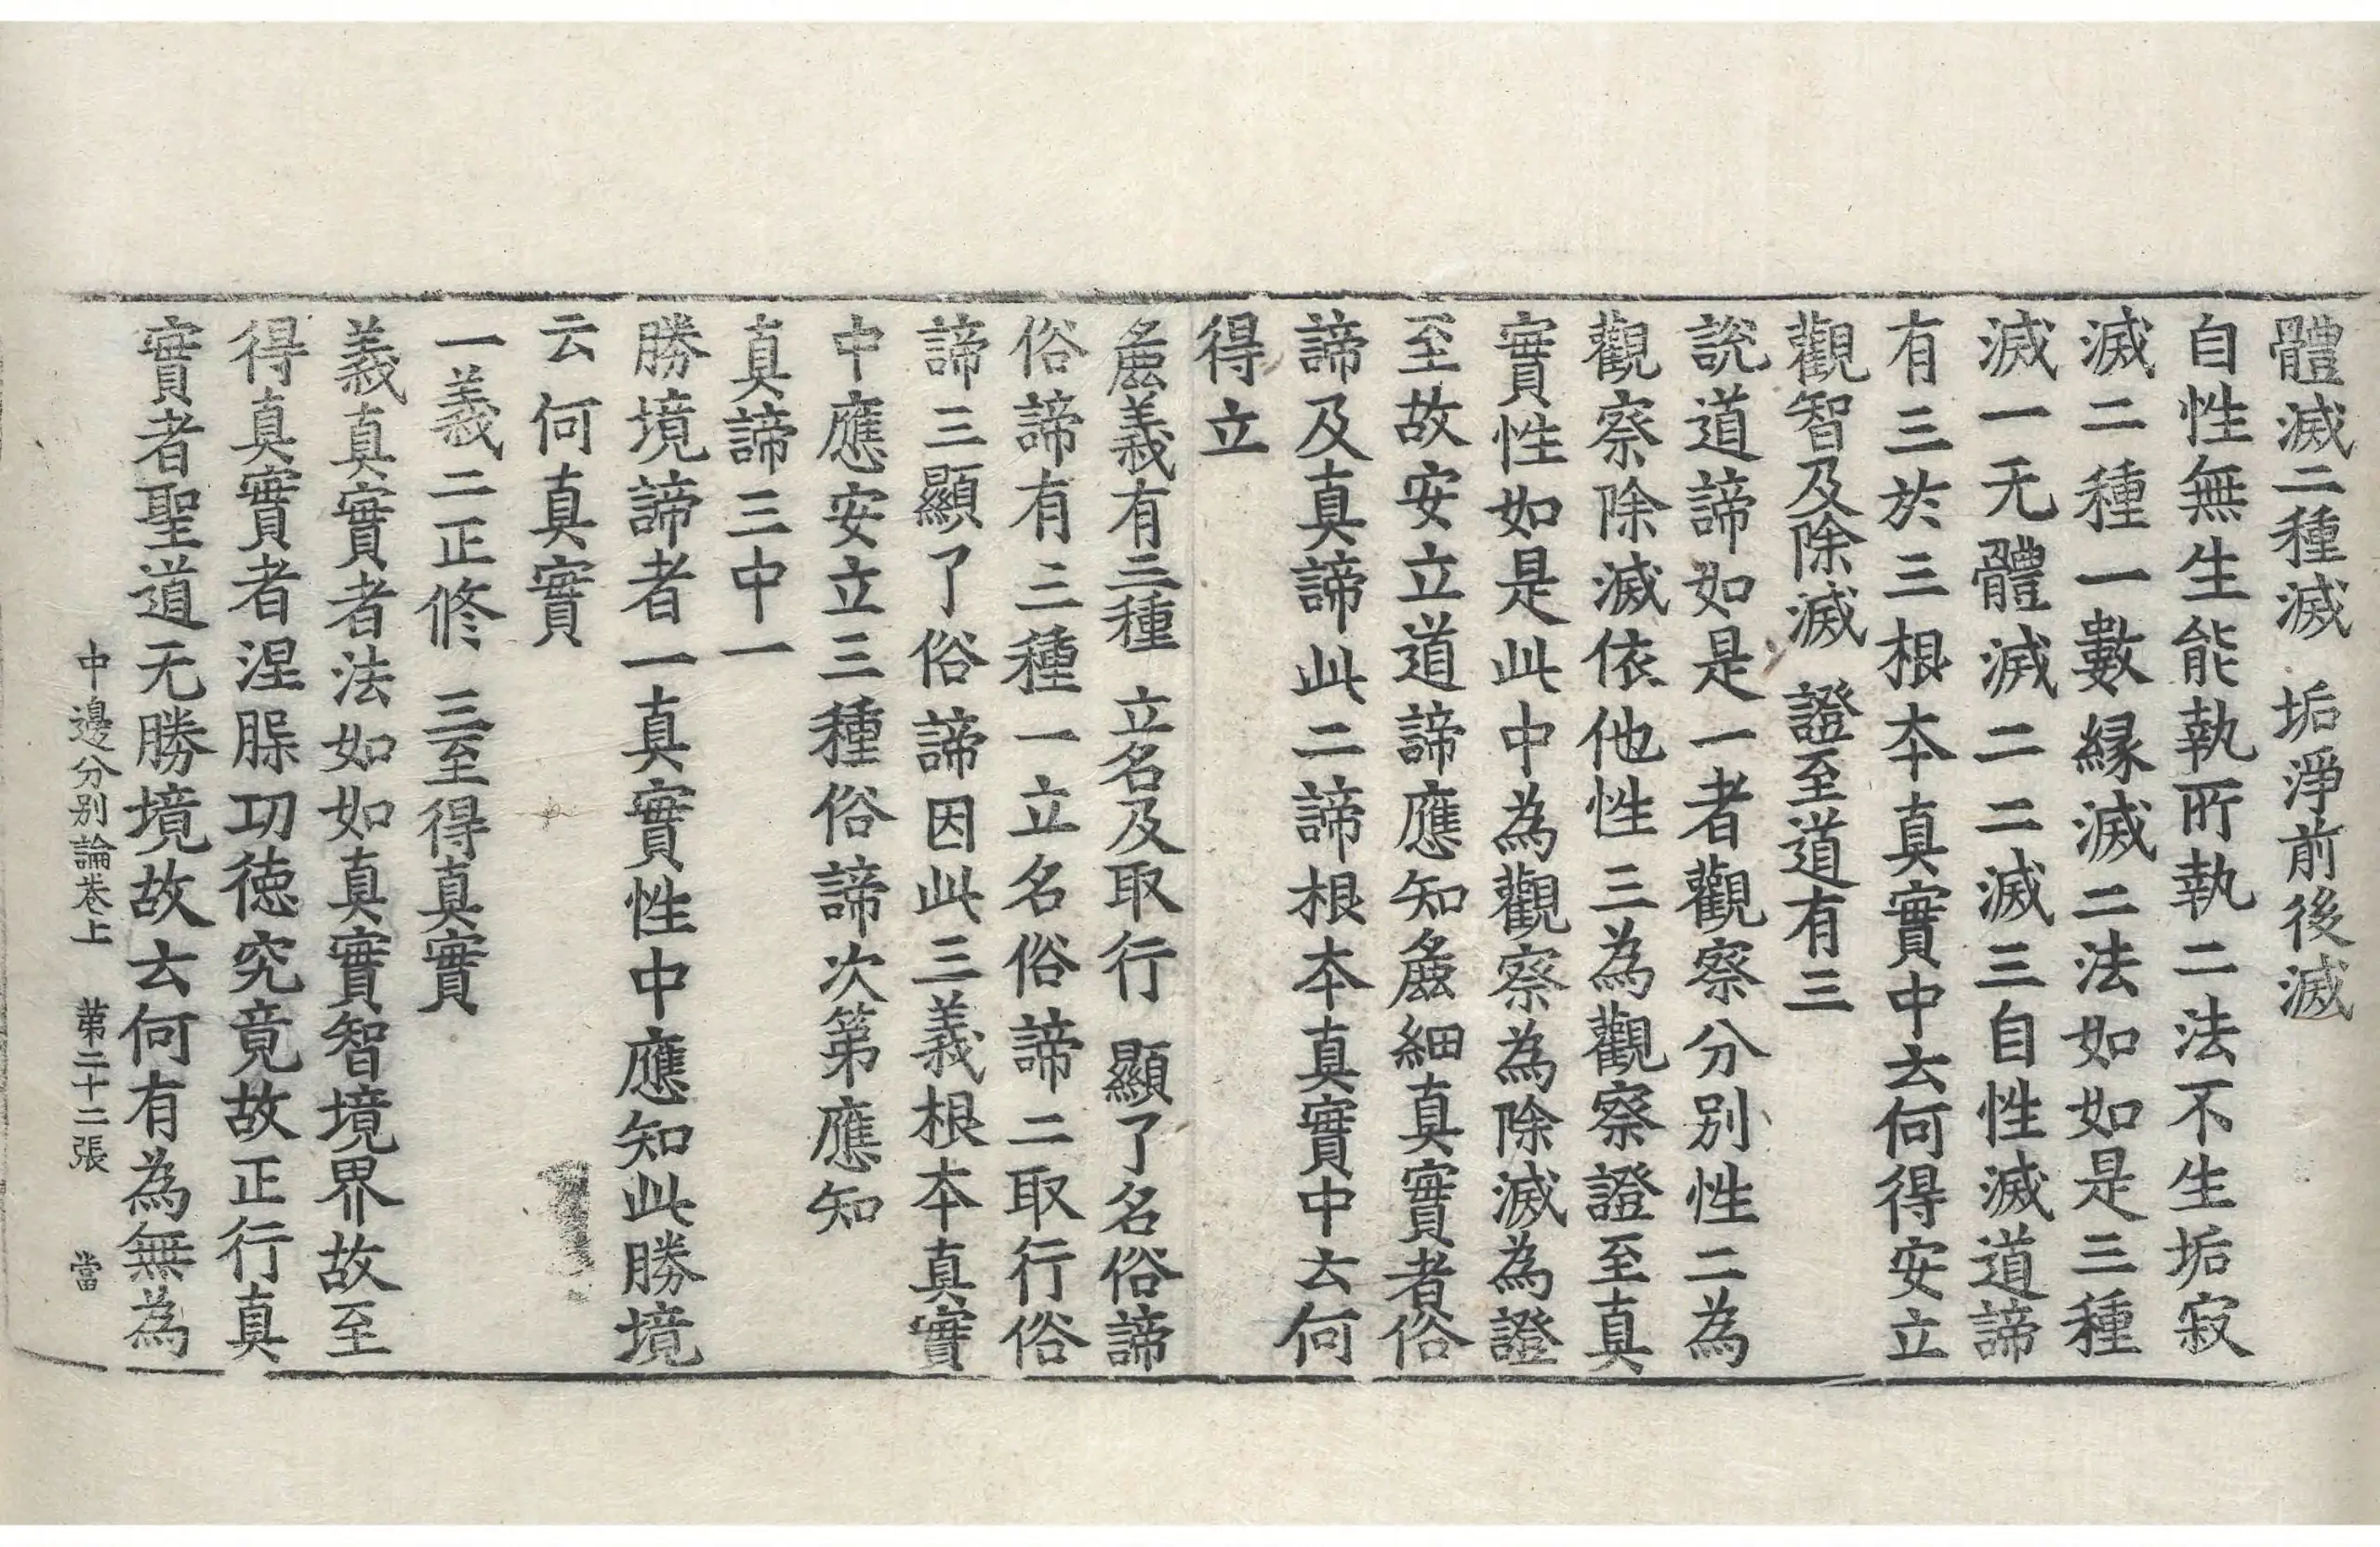 體滅二種滅　垢淨前後滅
自性無生能執所執二法不生垢寂
滅二種一數縁滅二法如如是三種
滅一无體滅二二滅三自性滅道諦
有三於三根本真實中云何得安立
觀智及除滅　證至道有三
說道諦如是一者觀察分別性二為
觀察除滅依他性三為觀察證至真
實性如是此中為觀察為除滅為證
至故安立道諦應知麁細真實者俗
諦及真諦此二諦根本真實中云何
得立
麁義有三種　立名及取行　顯了名俗諦
俗諦有三種一立名俗諦二取行俗
諦三顯了俗諦因此三義根本真實
中應安立三種俗諦次第應知
真諦三中一
勝境諦者一真實性中應知此勝境
云何真實
一義二正修　三至得真實
義真實者法如如真實智境界故至
得真實者涅槃功徳究竟故正行真
實者聖道无勝境故云何有為無為
中邊分別論卷上　苐二十二張　當